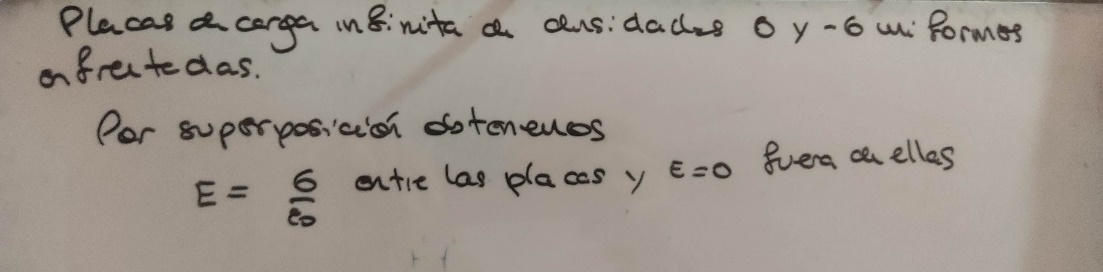 Placas de carga infinita de densidades σ y -σ uniformes
enfrentadas.
Por superposición obtenemos
E = σ/ε₀ entre las placas y E=0 fuera de ellas